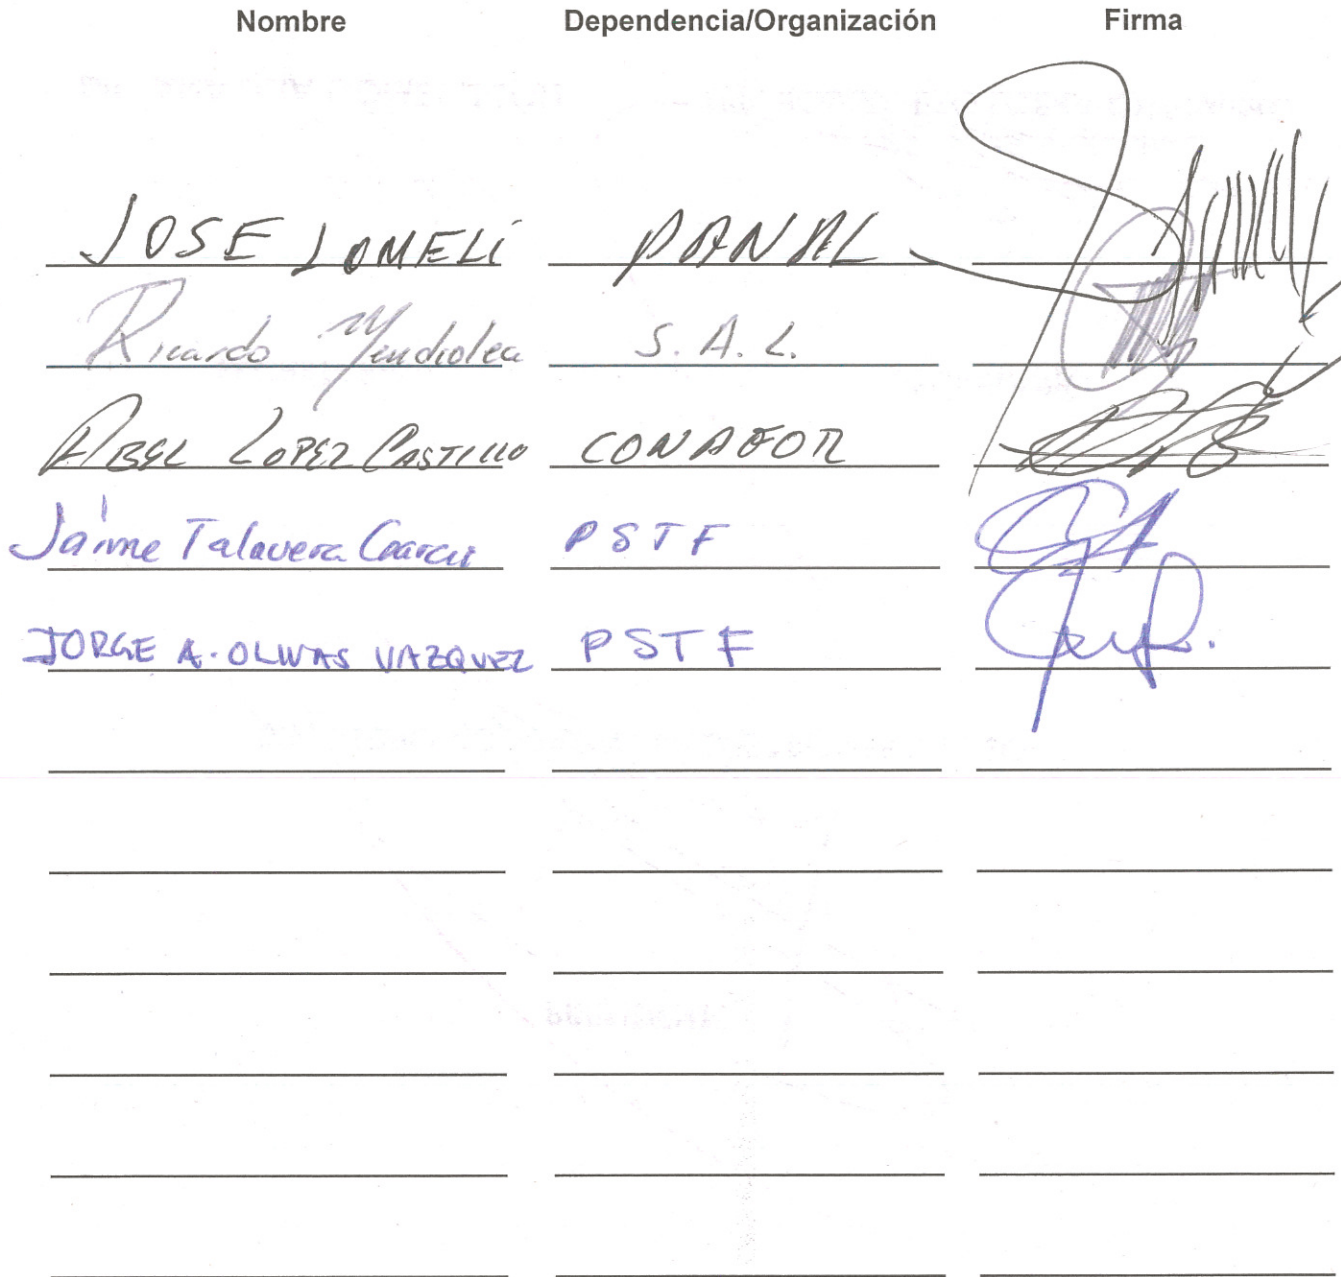 Nombre Dependencia/Organización Firma
JOSE LOMELÍ PANAL
Ricardo Mendiolea S.A.L.
ABEL LOPEZ CASTILLO CONAFOR
Jaime Talavera Garcia PSTF
JORGE A. OLIVAS VAZQUEZ PSTF